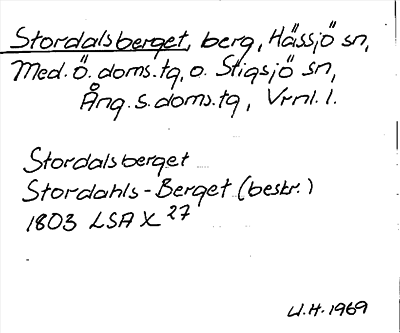 Stordalsberget, berg, Hässjö sn,
Med. ö. doms.tg, o. Stigsjö sn,
Ång. s. doms.tg, Vrnl. l.
Stordalsberget
Stordahls-Berget (beskr.)
1803 LSA X 27
U.H. 1969